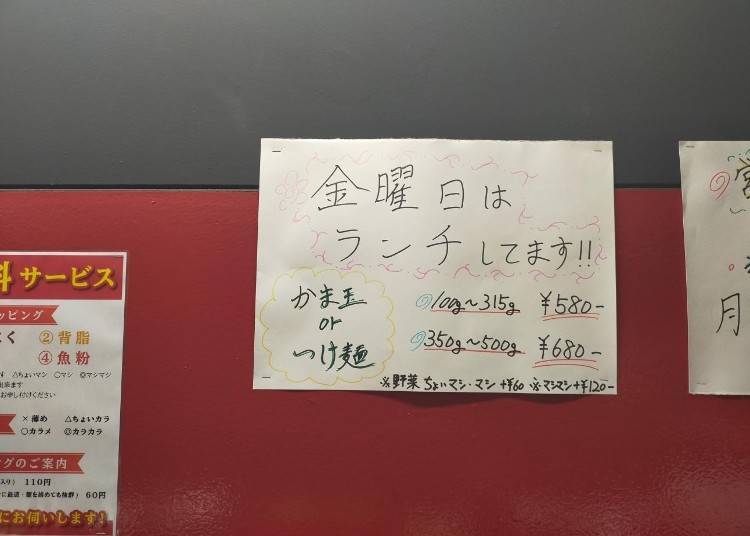 金曜日は
ランチしてます!!
かま玉
or
つけ麺
100g〜315g ¥580-
350g〜500g ¥680-
※野菜 ちょいマシ・マシ +¥60 ※マシマシ+¥120-
料サービス
ッピング
く ②背脂
④魚粉
△ちょいマシ ○マシ ◎マシマシ
出来ます
お申し付けください
×薄め △ちょいカラ
○カラメ ◎カラカラ
グのご案内
入り) 110円
60円
にお伺いします!
月